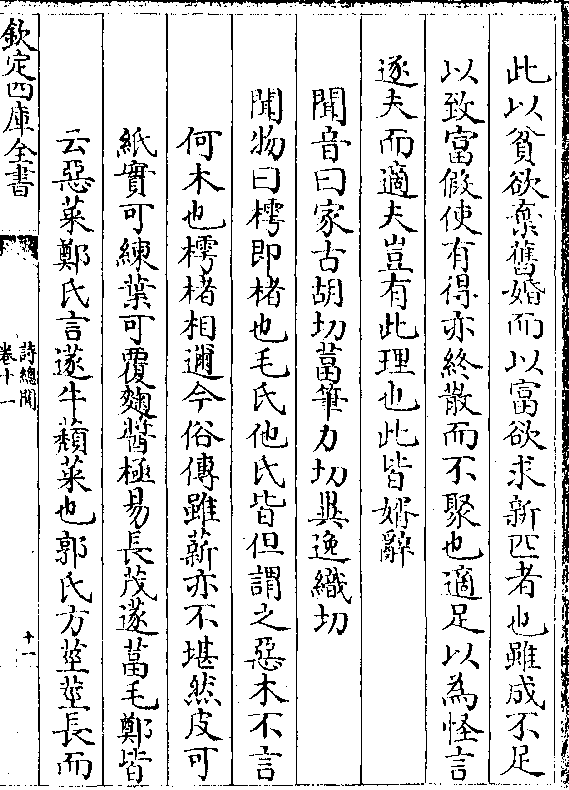 此以貧欲棄舊婚而以富欲求新匹者也雖成不足
以致富假使有得亦終散而不聚也適足以為怪言
逐夫而適夫豈有此理也此皆婿辭
聞音曰家古胡切葍筆力切異逸織切
聞物曰樗即楮也毛氏他氏皆但謂之惡木不言
何木也樗楮相邇今俗傳雖薪亦不堪然皮可
紙實可練葉可覆麴醬極易長茂遂葍毛鄭皆
云惡菜鄭氏言遂牛蘈菜也郭氏方莖莖長而
欽定四庫全書
詩總聞
卷十一
十一